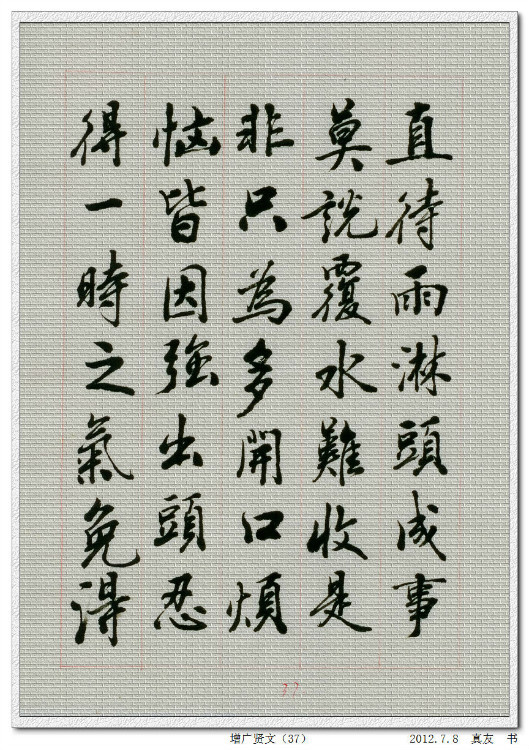 直待雨淋頭成事
莫說覆水難收是
非只為多開口煩
惱皆因強出頭忍
得一時之氣免得
37
增广贤文（37）
2012.7.8 真友 书